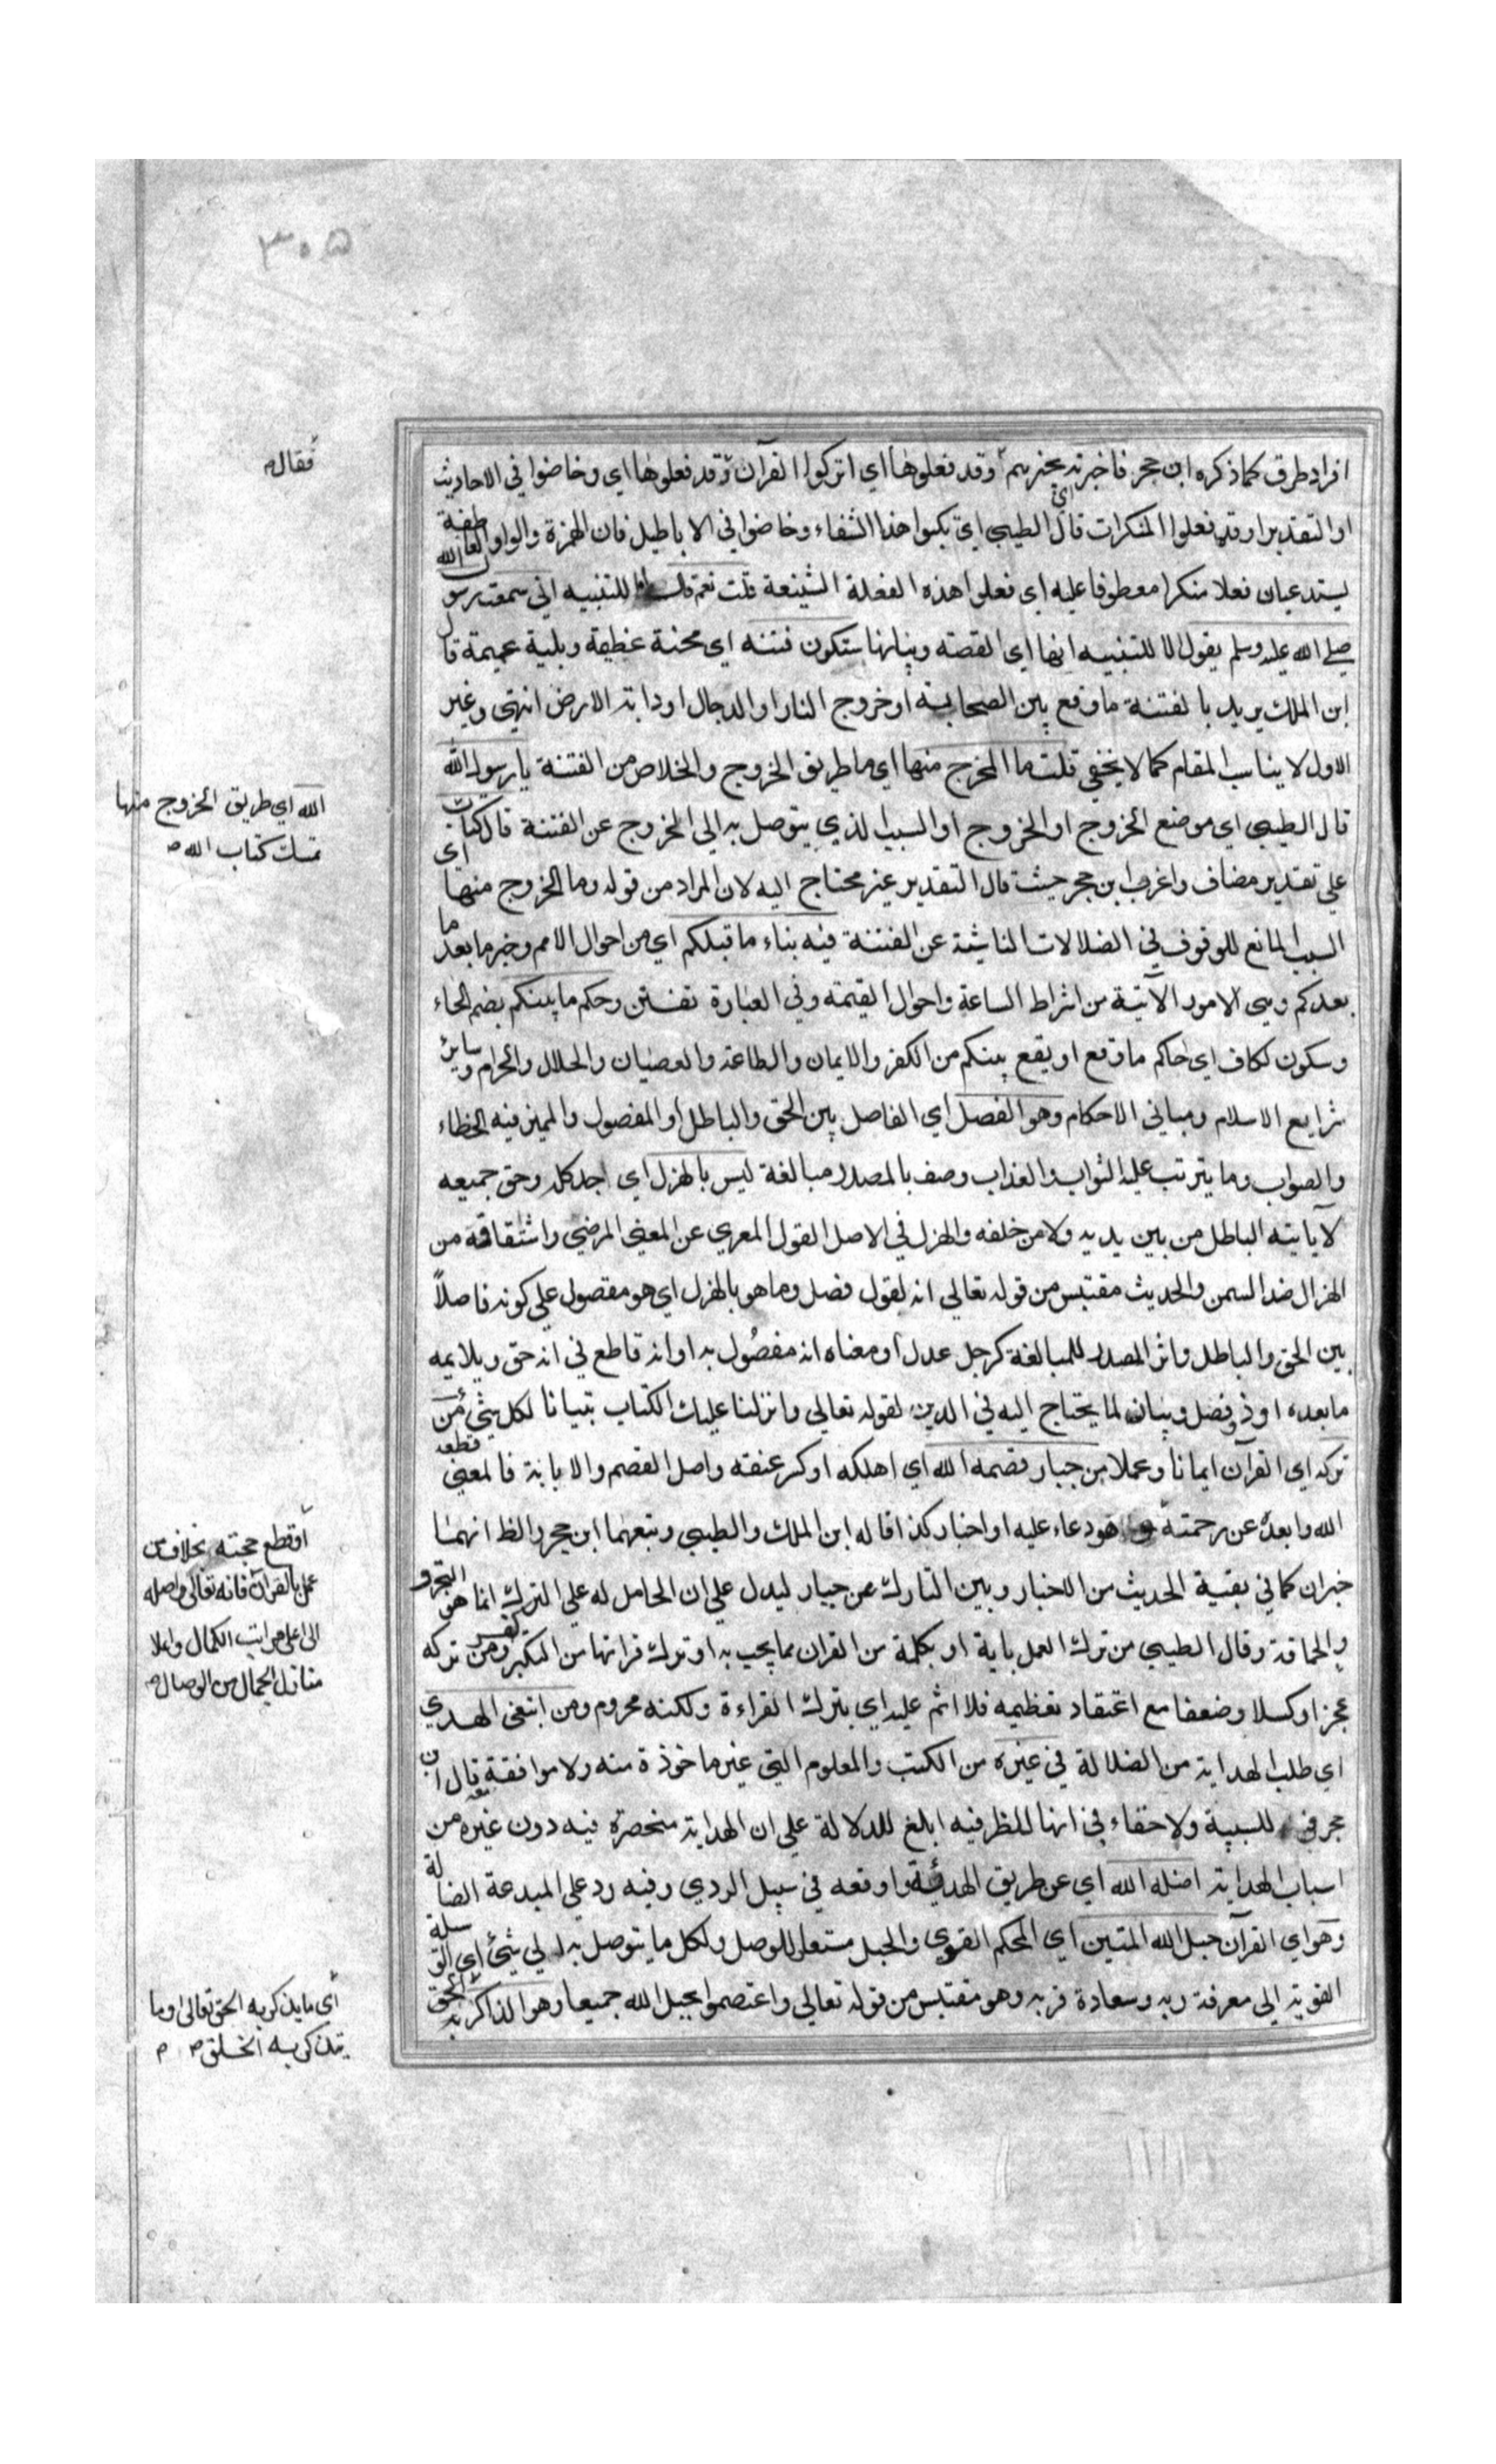 ٣٠٥
افراد طرق كما ذكره ابن حجر فاخبرته بخبرهم أوقد فعلوها اي اتركوا القرآن وقد فعلوها اي وخاضوا في الاحاديث
فقال
او التقدير اوقد فعلوا المنكرات قال الطيبي اي ارتكبوا هذا الشفاء وخاضوا في الاباطيل فان الهمزة والواو العاطفة
يستدعيان فعلا منكرا معطوفا عليه اي فعلوا هذه الفعلة الشنيعة قلت نعم قال اما للتنبيه اني سمعت رسول الله
صلى الله عليه وسلم يقول الا للتنبيه انها اي القصة وبيانها ستكون فتنة اي محنة عظيمة وبلية عميمة قال
ابن الملك يريد بالفتنة ما وقع بين الصحابة او خروج النار او الدجال او دابة الارض انتهى وغير
الاول لا يناسب المقام كما لا يخفي قلت ما المخرج منها اي ما طريق الخروج والخلاص من الفتنة يا رسول الله
قال الطيبي اي موضع الخروج او الخروج او السبب الذي يتوصل به الى الخروج عن الفتنة قال كتاب
الله اي طريق الخروج منها
تمسك كتاب الله
علي تقدير مضاف واغرب ابن حجر حيث قال التقدير غير محتاج اليه لان المراد من قوله وما الخروج منها اي
السبب المانع للوقوف في الضلالات الناشية عن الفتنة فيه بناء ما قبلكم اي من احوال الامم وخبر ما بعد ما
بعدكم وهي الامور الآتية من اشراط الساعة واحوال القيمة وفي العبارة تفنن وحكم ما بينكم بضم الحاء
وسكون الكاف اي حاكم ما وقع او يقع بينكم من الكفر والايمان والطاعة والعصيان والحلال والحرام وساير
شرايع الاسلام ومباني الاحكام وهو الفصل اي الفاصل بين الحق والباطل او المفصول والمميز فيه الخطاء
والصواب وما يترتب عليه الثواب والعذاب وصف بالمصدر مبالغة ليس بالهزل اي جد كله وحق جميعه
لا ياتيه الباطل من بين يديه ولا من خلفه والهزل في الاصل القول المعري عن المعني المرضي واشتقاقه من
الهزال ضد السمن والحديث مقتبس من قوله تعالي انه لقول فصل وما هو بالهزل اي هو مقصول علي كونه فاصلاً
بين الحق والباطل واثر المصدر للمبالغة كرجل عدل او معناه انه مفصُول به او انه قاطع في انه حق ويلايمه
ما بعده او ذو فصل وبيان لما يحتاج اليه في الدين لقوله تعالي وانزلنا عليك الكتاب تبيانا لكل شيء من
تركه اي القرآن ايمانا وعملا من جبار قصمه الله اي اهلكه او كسر عنقه واصل القصم والابانة فالمعني قطعه
الله وابعده عن رحمته هو دعاء عليه او اخبار كذا قاله ابن الملك والطيبي وتبعهما ابن حجر والظ انهما
أو قطع حجته بخلاف من
عمل بالقرآن فانه تعالى واصله
الى اعلى مراتب الكمال واعلا
منازل الجمال من الوصال
خبران كما في بقية الحديث من الاخبار وبين التارك عن جبار ليدل علي ان الحامل له علي الترك انما هو التجبر و
والحماقة وقال الطيبي من ترك العمل باية او بكلمة من القران مما يجب به او ترك قراتها من التكبر كفر ومن تركه
عجزا وكسلا وضعفا مع اعتقاد تعظيمه فلا اثم عليه اي بترك القراءة ولكنه محروم ومن ابتغي الهدي
اي طلب الهداية من الضلالة في غيره من الكتب والعلوم التي غير ماخوذة منه ولا موافقة معه قال ابن
حجر في للسببية ولا خفاء في انها للظرفيه ابلغ للدلالة علي ان الهداية منحصرة فيه دون غيره من
اسباب الهداية اضله الله اي عن طريق الهداية واوقعه في سبيل الردي وفيه رد علي المبدعة الضالة
وهو اي القرآن حبل الله المتين اي المحكم القوي والحبل مستعار للوصل ولكل ما يتوصل به الي شيء اي الوسيلة
القوية الي معرفة ربه وسعادة قربه وهو مقتبس من قوله تعالي واعتصموا بحبل الله جميعا وهو الذاكر به الحق
أي ما يذكر به الحق تعالى او ما
يتذكر به الخلق